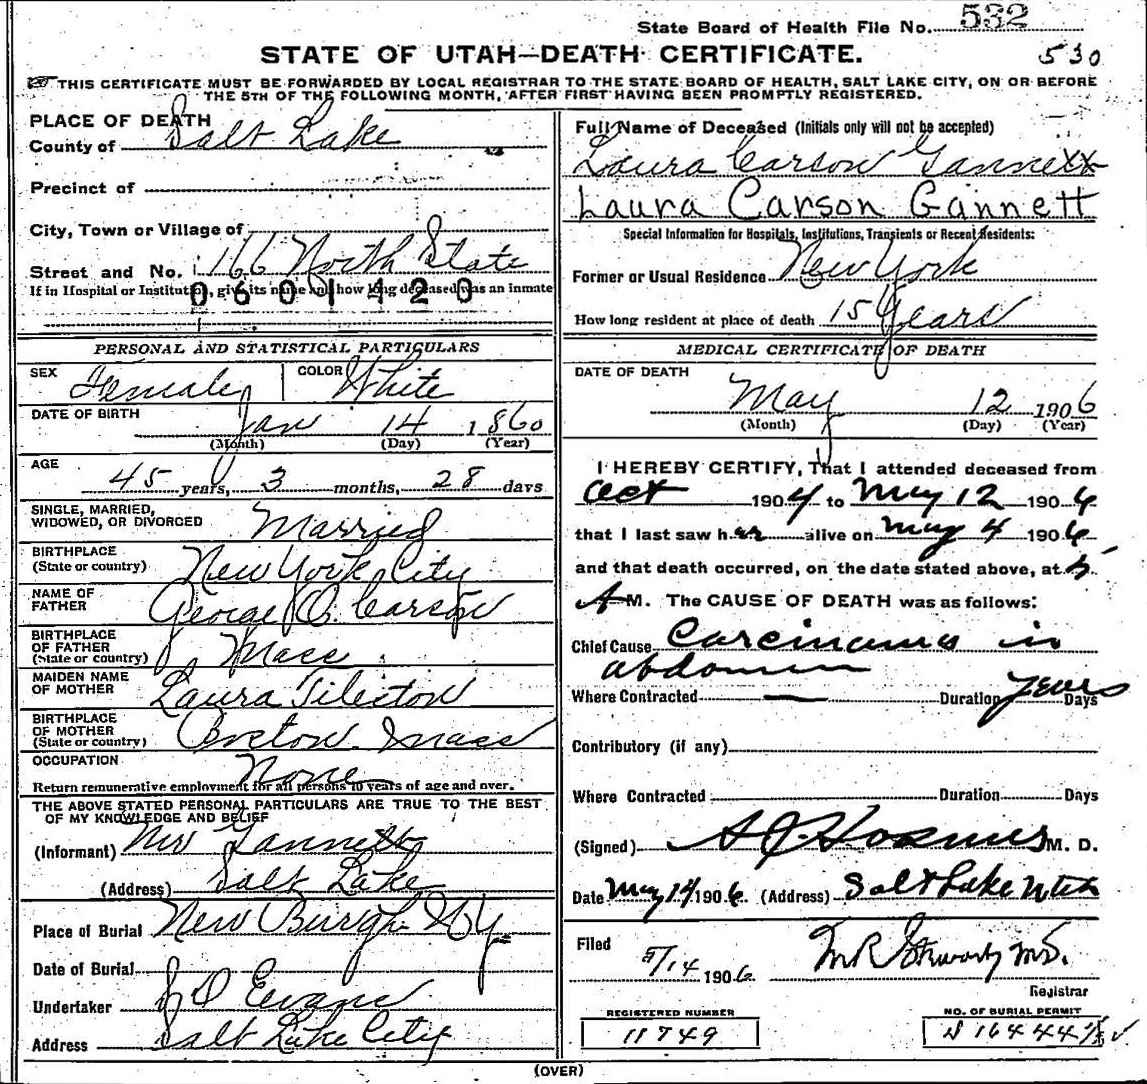 State Board of Health File No. 532
STATE OF UTAH—DEATH CERTIFICATE.
530
THIS CERTIFICATE MUST BE FORWARDED BY LOCAL REGISTRAR TO THE STATE BOARD OF HEALTH, SALT LAKE CITY, ON OR BEFORE
THE 5TH OF THE FOLLOWING MONTH, AFTER FIRST HAVING BEEN PROMPTLY REGISTERED.
PLACE OF DEATH
County of Salt Lake
Precinct of
City, Town or Village of
Street and No. 166 North State
If in Hospital or Institution, give its name and how long deceased was an inmate
0601420
PERSONAL AND STATISTICAL PARTICULARS
SEX Female COLOR White
DATE OF BIRTH Jan 14 1860
(Month) (Day) (Year)
AGE 45 years, 3 months, 28 days
SINGLE, MARRIED,
WIDOWED, OR DIVORCED Married
BIRTHPLACE
(State or country) New York City
NAME OF
FATHER George O. Carson
BIRTHPLACE
OF FATHER
(State or country) Mass
MAIDEN NAME
OF MOTHER Laura Tileston
BIRTHPLACE
OF MOTHER
(State or country) Mass
OCCUPATION None
Return remunerative employment for all persons 10 years of age and over.
THE ABOVE STATED PERSONAL PARTICULARS ARE TRUE TO THE BEST
OF MY KNOWLEDGE AND BELIEF
(Informant) Mr Gannett
(Address) Salt Lake
Place of Burial New Burgh NY
Date of Burial
Undertaker Evans
Address Salt Lake City
Full Name of Deceased (Initials only will not be accepted)
Laura Carson Gannett
Laura Carson Gannett
Special Information for Hospitals, Institutions, Transients or Recent Residents:
Former or Usual Residence New York
How long resident at place of death 15 Years
MEDICAL CERTIFICATE OF DEATH
DATE OF DEATH
May 12 1906
(Month) (Day) (Year)
I HEREBY CERTIFY, That I attended deceased from
Oct 1904 to May 12 1906
that I last saw her alive on May 4 1906
and that death occurred, on the date stated above, at 5
A M. The CAUSE OF DEATH was as follows:
Chief Cause Carcinoma in
abdomen
Where Contracted — Duration Years Days
Contributory (if any)
Where Contracted Duration Days
(Signed) M. D.
Date May 14 1906 (Address) Salt Lake Utah
Filed 5/14 1906 M.D.
Registrar
REGISTERED NUMBER
11749
NO. OF BURIAL PERMIT
16444
(OVER)